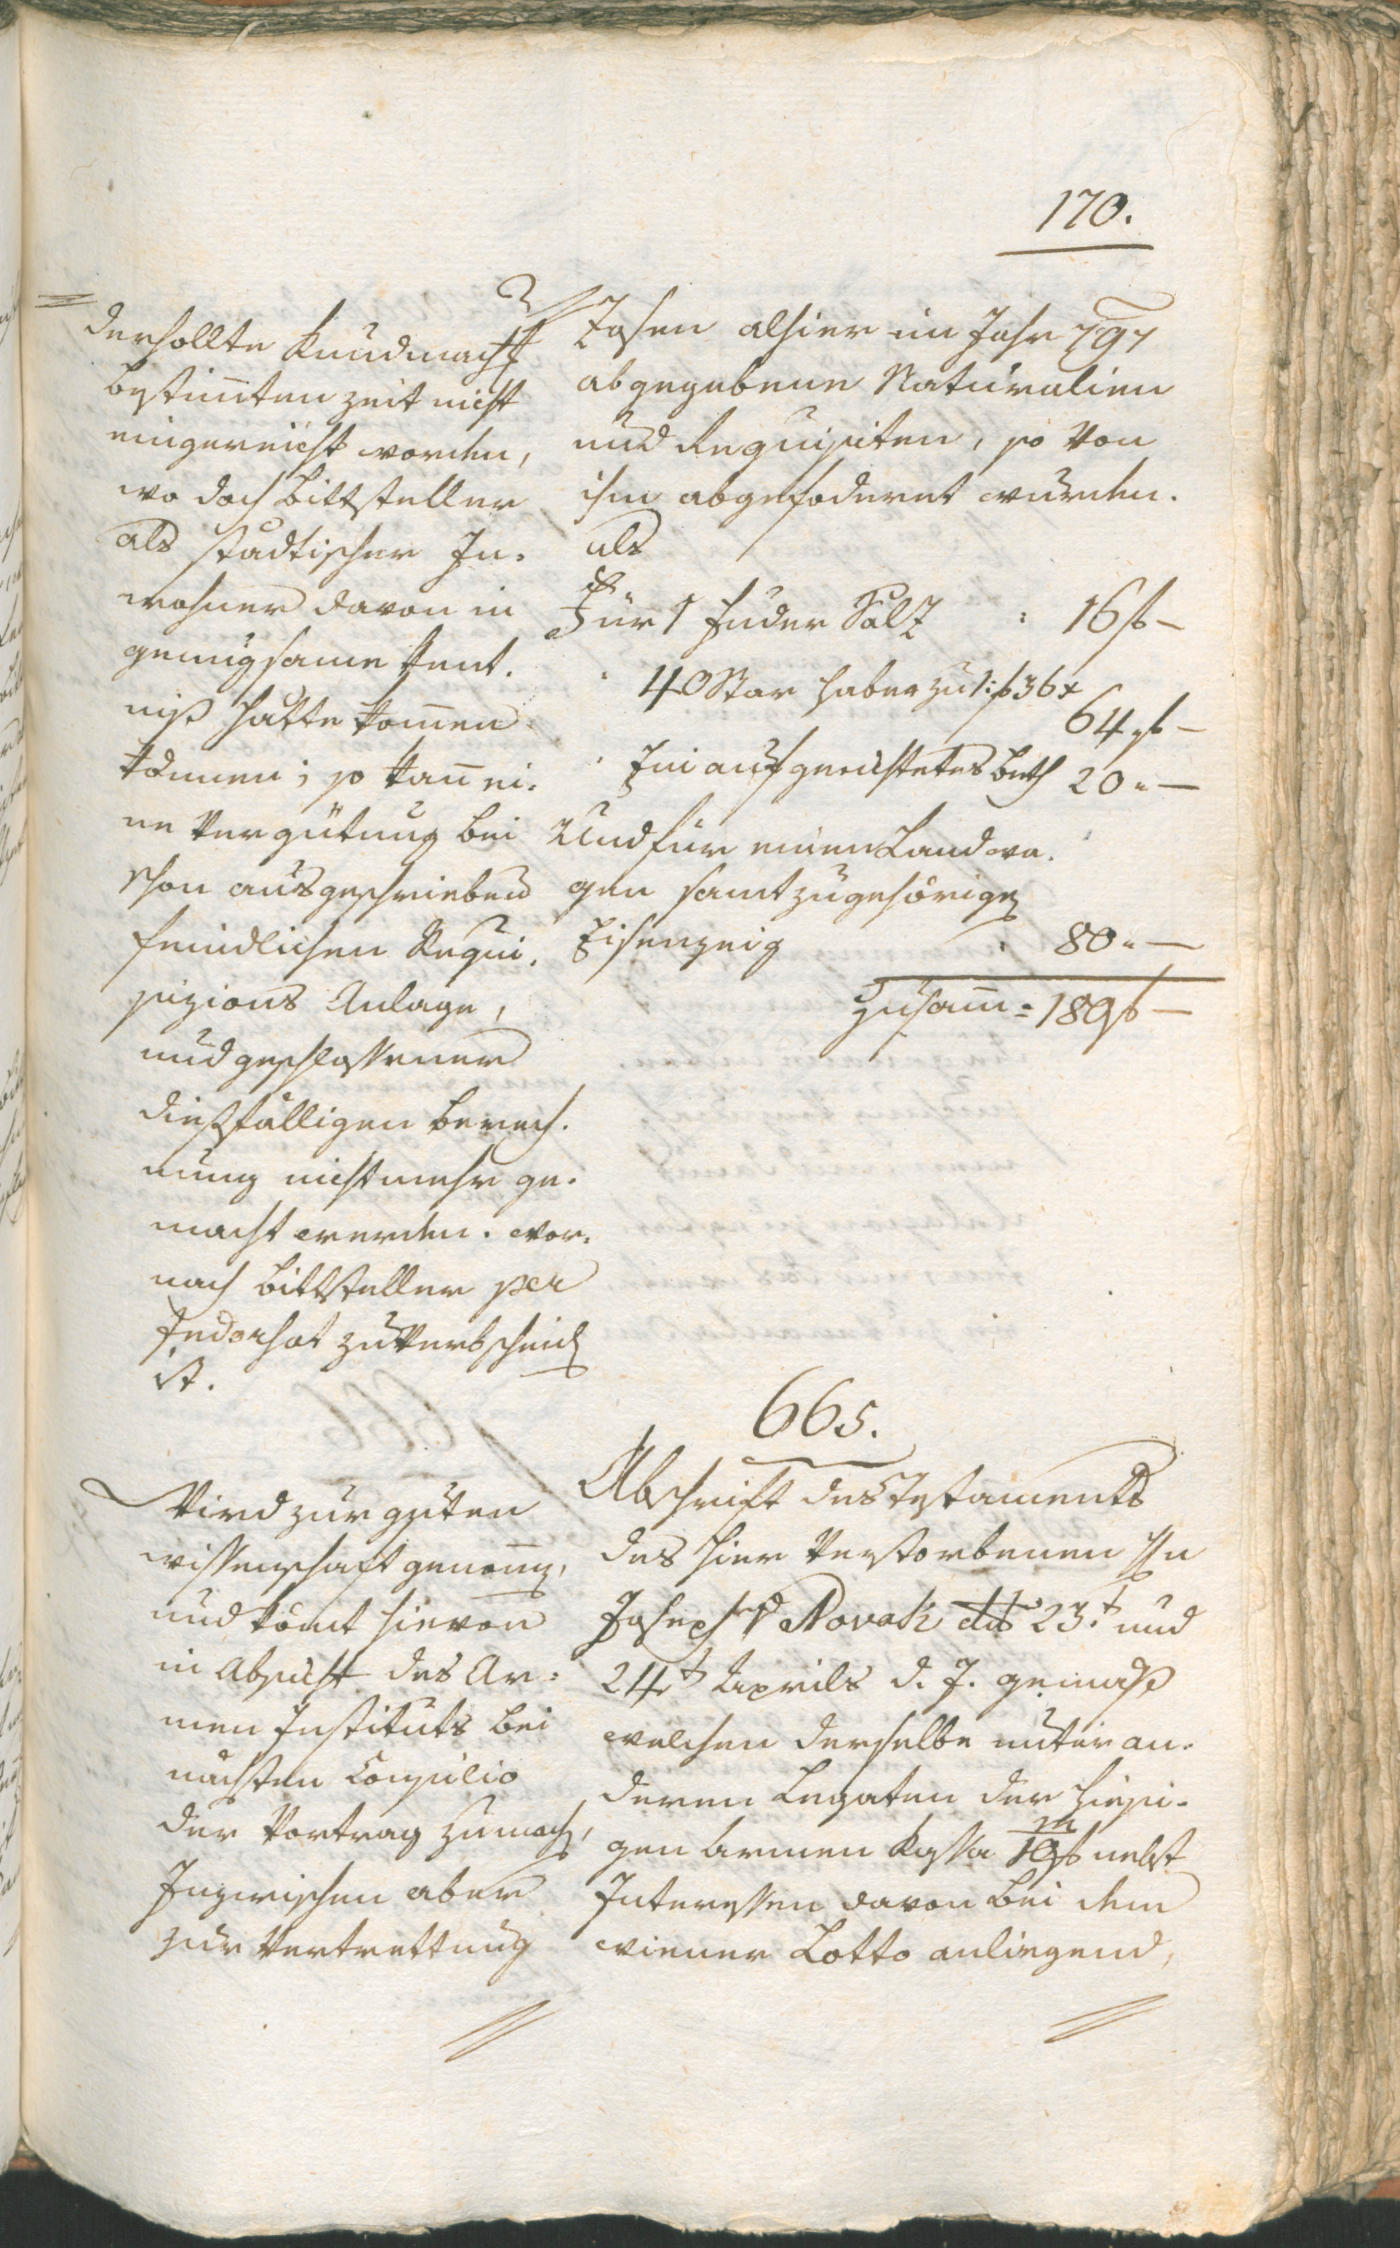 170.
derhollte Kundmach¬
bestim̄ten zeit nicht
eingereicht worden,
wo doch Bittsteller
als städtischer In¬
wohner davon in
genuegsame Kent¬
niß hatte kom̄en
können; so kan̄ ei¬
ne Vergütung bei
schon ausgeschrieben
feindlichen Requi¬
sizions Anlage,
und geschlossener
dießfälligen berech¬
nung nicht mehr ge¬
macht werden. wor¬
nach Bittsteller per
Indorsat zu verbscheiden
ist.
Zosen alhier im Jahr 797
abgegebene Naturalien
und Requisiten, so von
ihm abgefoderet wurden.
als
Für 1 Fuder Salz : 16 f –
40 Star Haber zu 1 f 36 x
64 f –
Ein aufgerichtetes Beth 20 " –
Und für einen Landwa¬
gen samt zugehörigen
Eisenzeig : 80 " –
Zusam̄ = 180 f –
665.
Wird zur guten
wissenschaft genom̄en,
und kömt hievon
in Absicht des Ar¬
men Instituts bei
nächsten Consilio
der Vortrag zumachen,
Inzwischen aber
zur Vertrettung
Abschrift des Testaments
des hier Verstorbenen Hn
Joseph v Novak dto 23.t und
24t Aprils d. J. gemäß
welchen derselbe unter an¬
deren Legaten der hiesi¬
gen Armen Kassa nebst
Interessen davon bei dem
wiener Lotto anliegend,